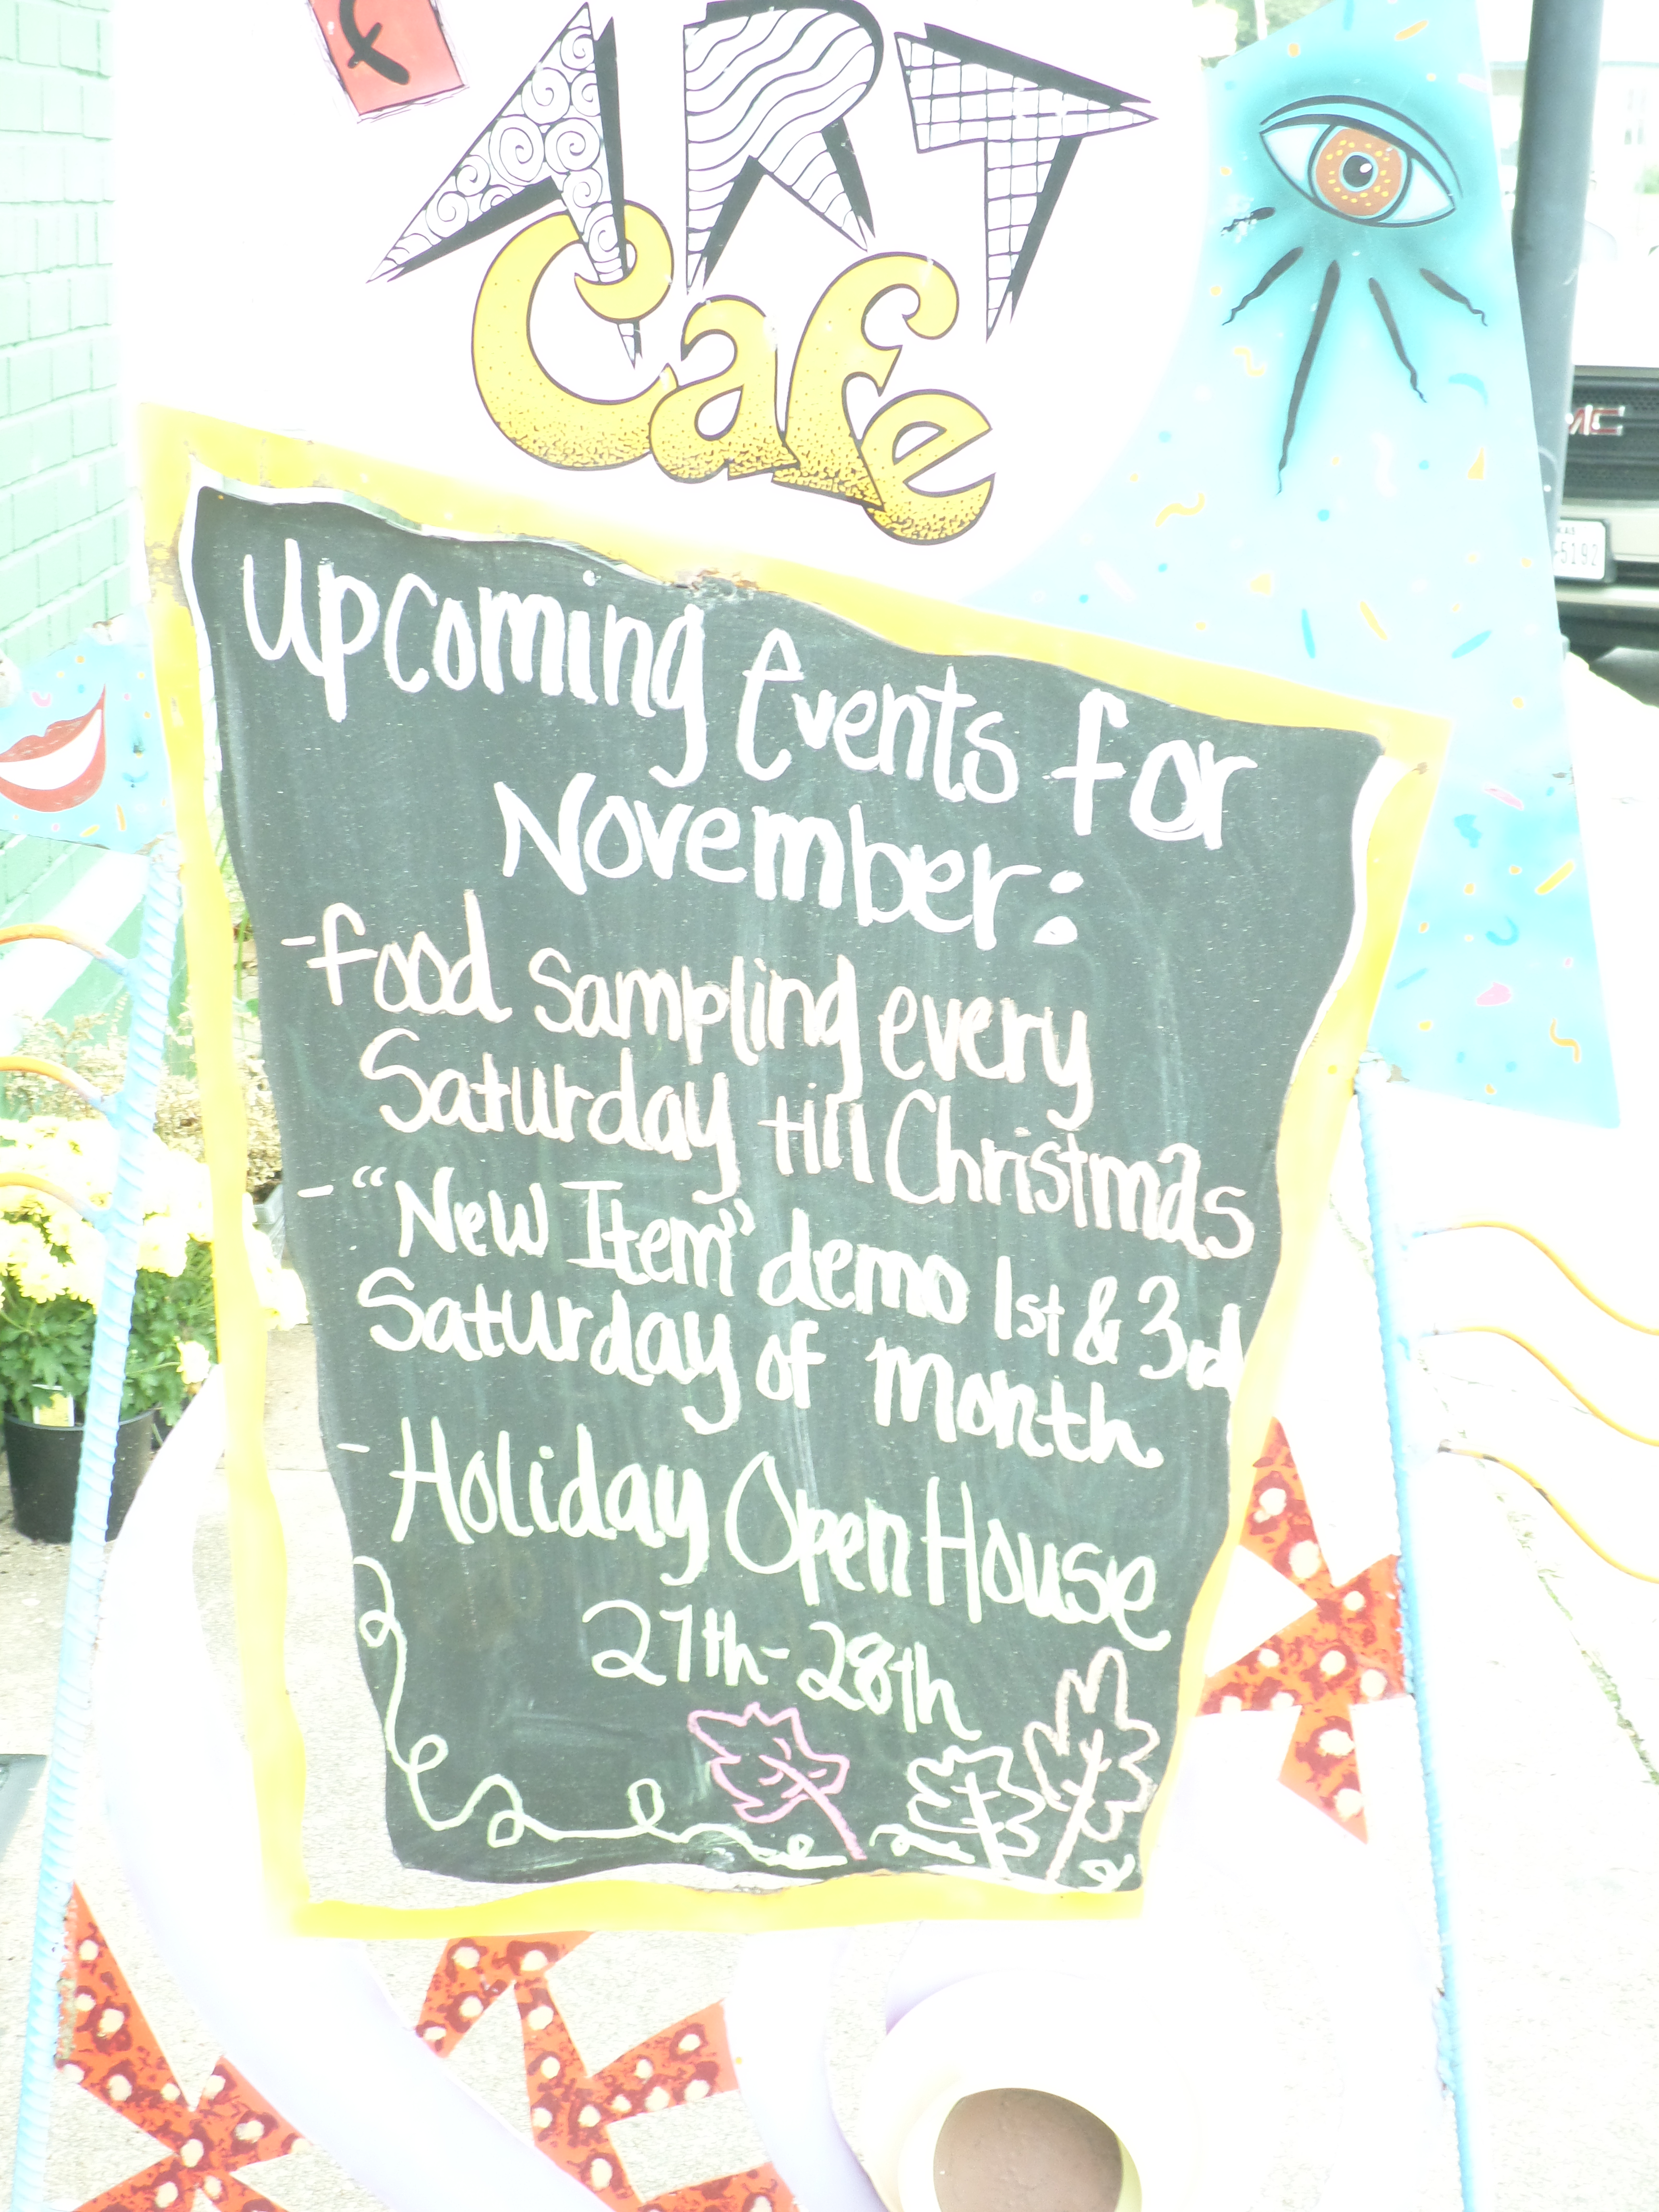 f
ART
Cafe
Upcoming Events for
November:
-Food Sampling every
Saturday till Christmas
-"New Item" demo 1st & 3rd
Saturday of month
-Holiday Open House
27th-28th
MC
5192